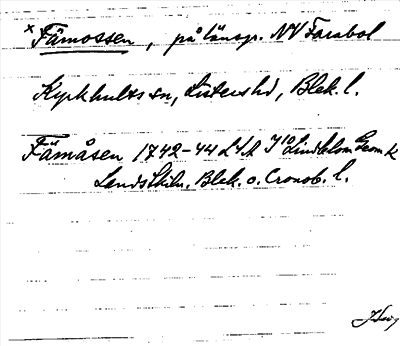 x Fämossen, på länsgr. NV Farabol
Kyrkhults sn, Listers hd, Blek. l.
Fämåsen 1742-44 LSA Lindblom Geom. k
Landsskiln. Blek. o. Cronob. l.